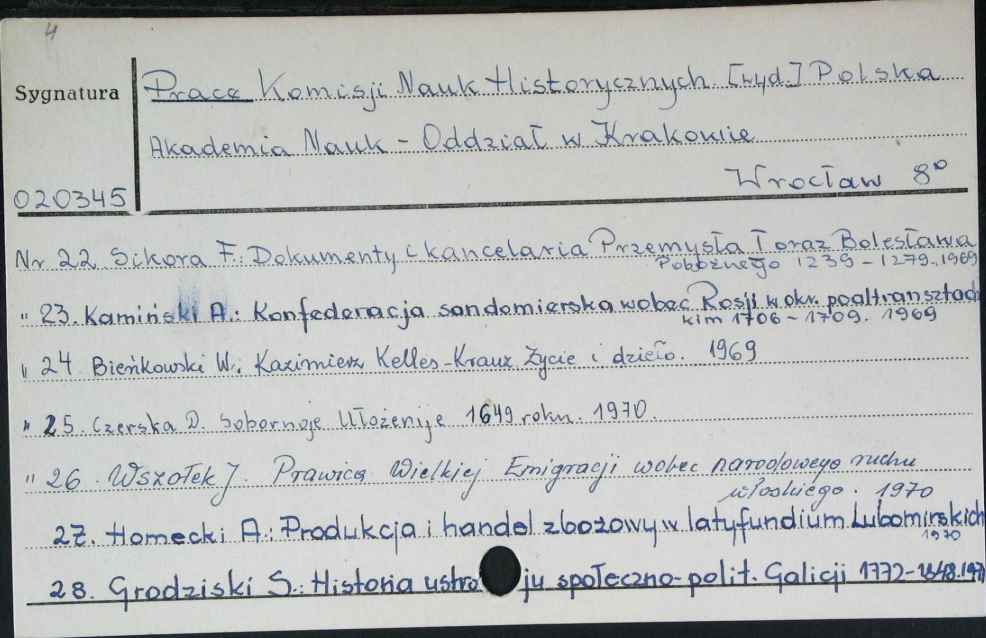 4
Sygnatura
Prace Komisji Nauk Historycznych [wyd.] Polska
Akademia Nauk - Oddział w Krakowie
Wrocław 8°
020345
Nr 22 Sikora F.: Dokumenty i kancelaria Przemysła I oraz Bolesława
Pobożnego 1239 - 1279. 1969
" 23. Kamiński A.: Konfederacja sandomierska wobec Rosji w okr. poaltransztadz
kim 1706 - 1709. 1969
" 24 Bieńkowski W.: Kazimierz Kelles-Krauz Życie i dzieło. 1969
" 25. Czerska D. Sobornoje Ułożenije 1649 roku. 1970.
" 26. Wszołek J. Prawica Wielkiej Emigracji wobec narodowego ruchu
włoskiego. 1970
27. Homecki A.: Produkcja i handel zbożowy w latyfundium Lubomirskich
1970
28. Grodziski S.: Historia ustro ju społeczno-polit. Galicji 1772-1848.